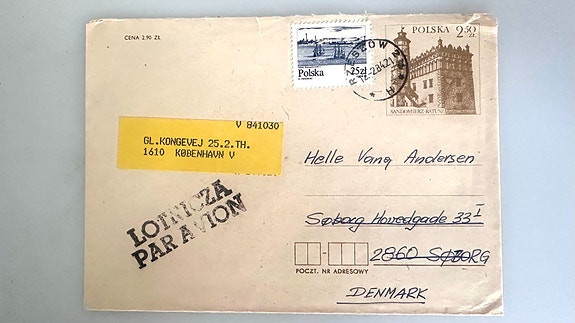 CENA 2,90 ZŁ
Polska
25zł
RZESZÓW 2
POLSKA
2,50
ZŁ
SANDOMIERZ-RATUSZ
V 841030
GL.KONGEVEJ 25.2.TH.
1610 KØBENHAVN V
LOTNICZA
PAR AVION
Helle Vang Andersen
Søborg Hovedgade 33 I
2860 SØBORG
POCZT. NR ADRESOWY
DENMARK